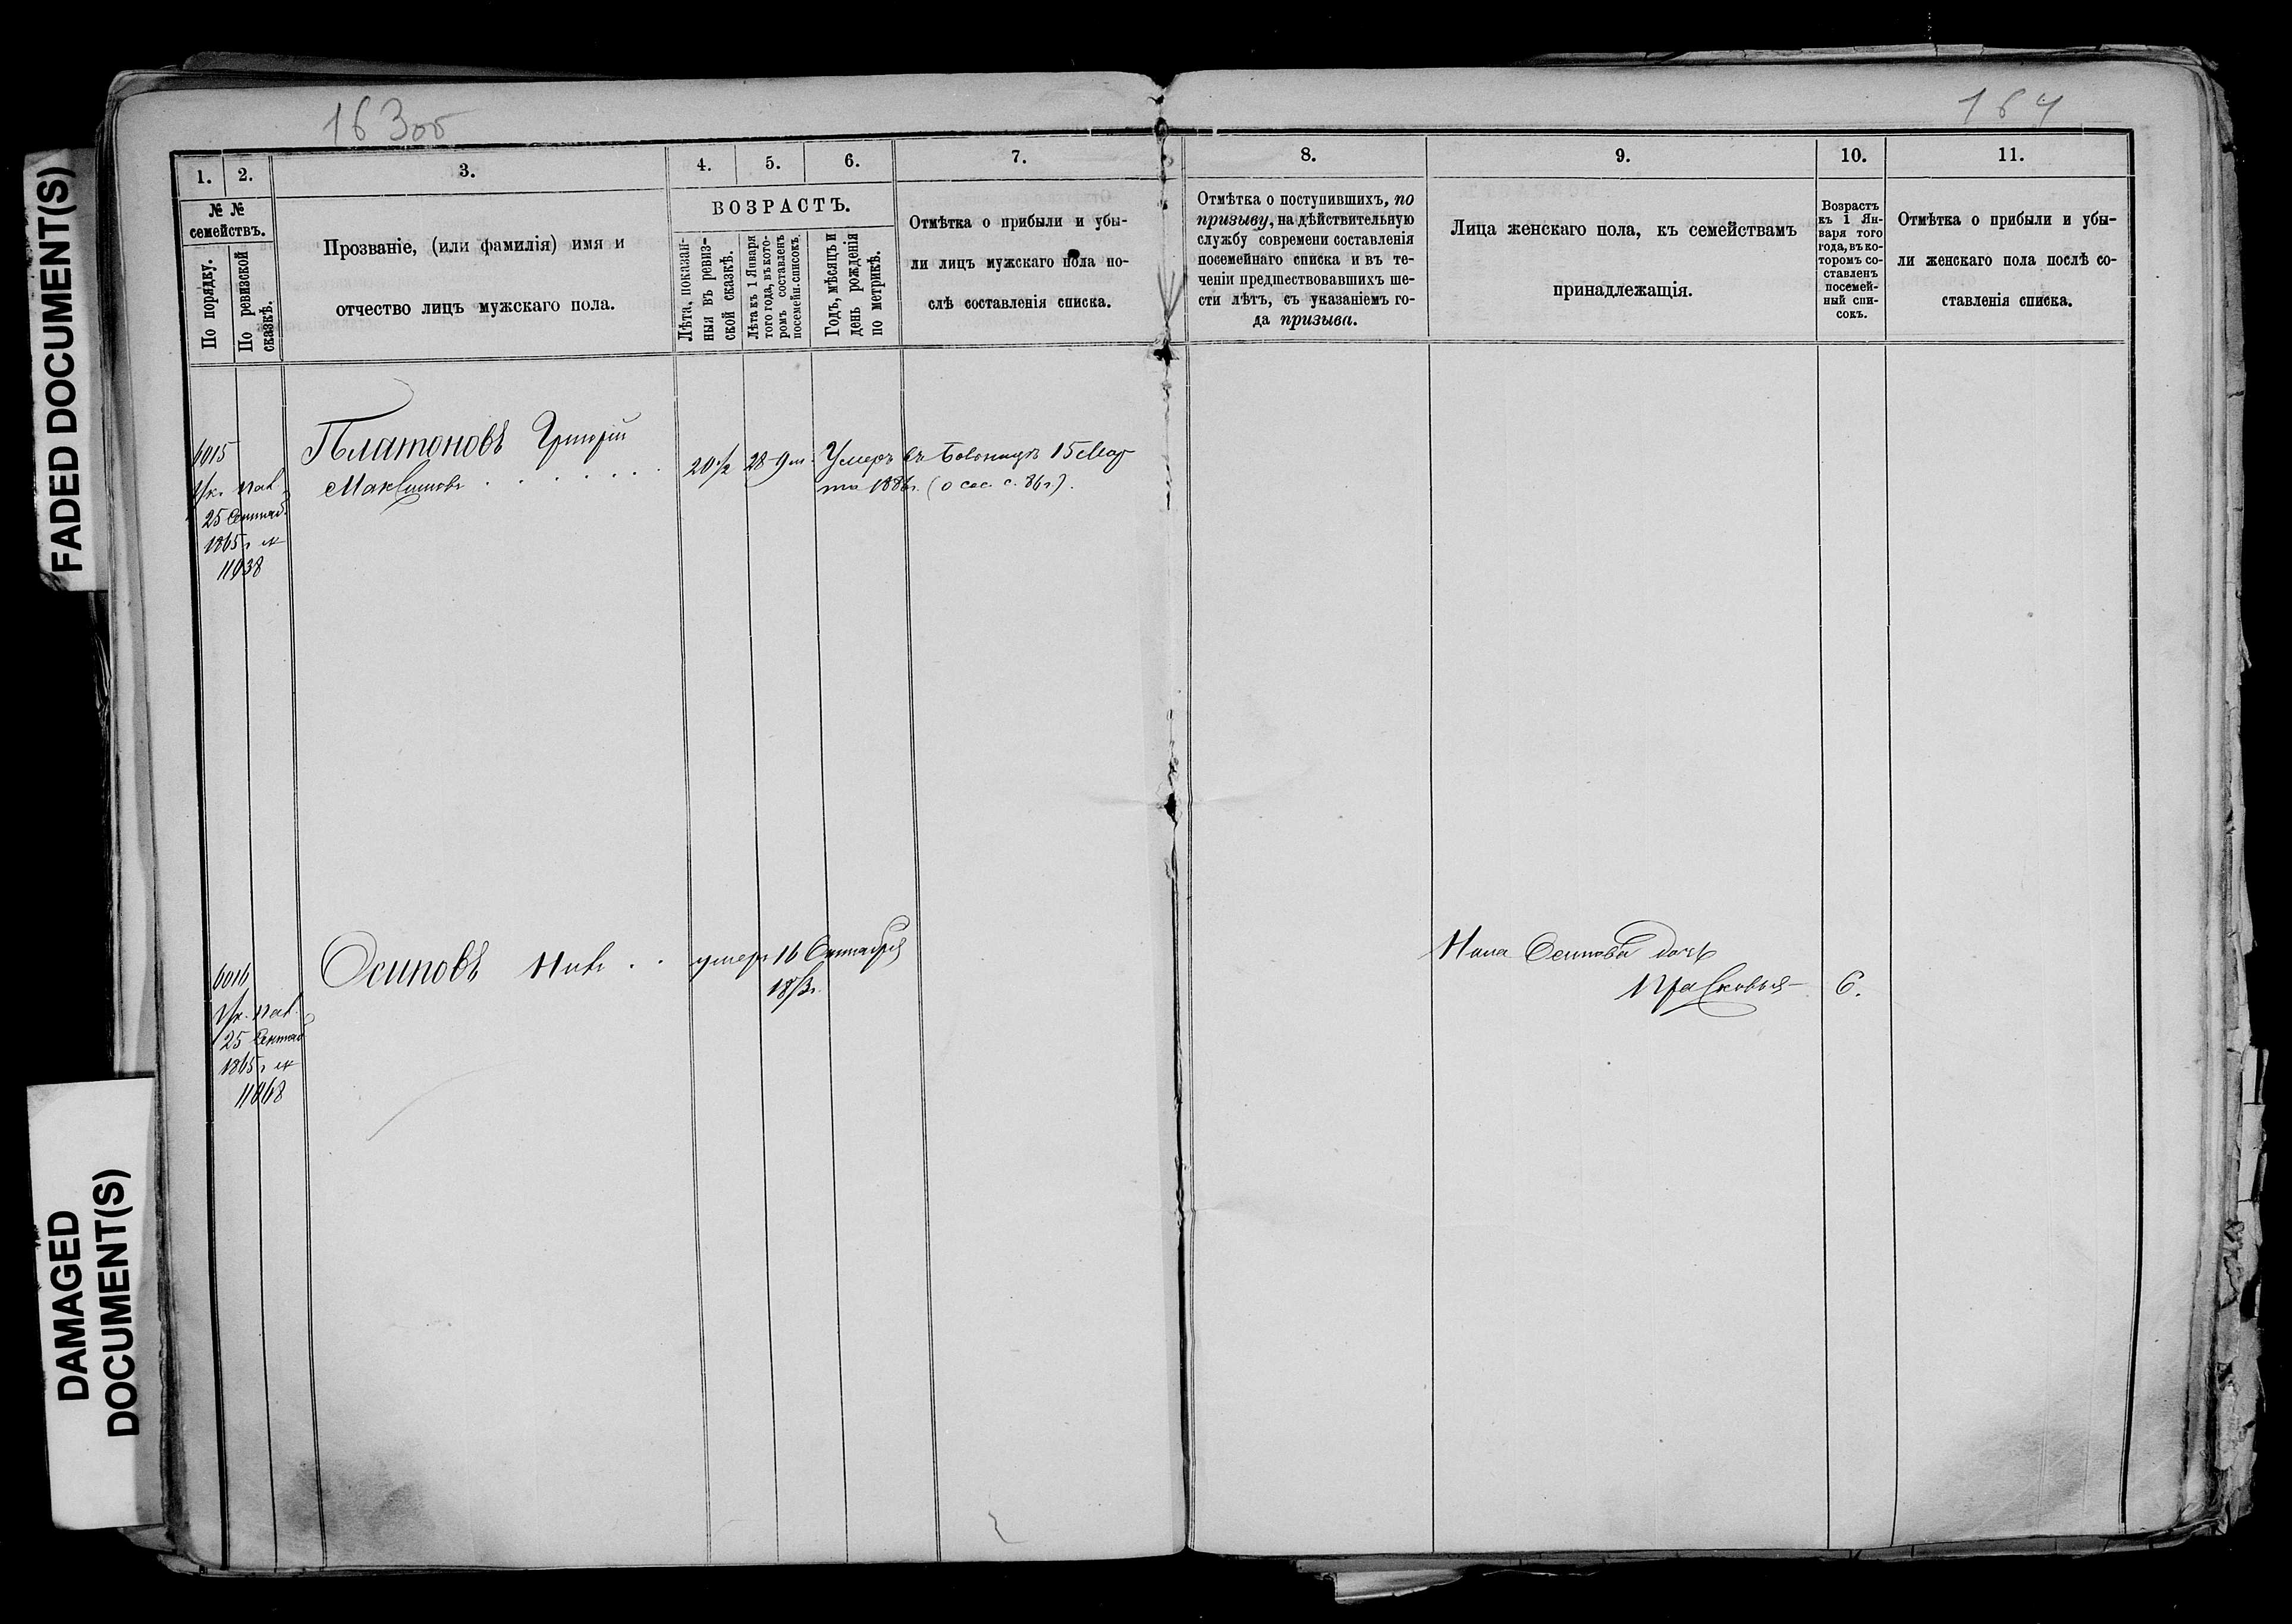 163об
164
FADED DOCUMENT(S)
DAMAGED
DOCUMENT(S)
1.
2.
3.
4.
5.
6.
7.
8.
9.
10.
11.
№ №
семействъ.
По порядку.
По ревизской
сказкѣ.
Прозваніе, (или фамилія) имя и
отчество лицъ мужскаго пола.
ВОЗРАСТЪ.
Лѣта, показан-
ныя въ ревиз-
ской сказкѣ.
Лѣта къ 1 Января
того года, въ кото-
ромъ составленъ
посемейн. списокъ.
Годъ, мѣсяцъ и
день рожденія
по метрикѣ.
Отмѣтка о прибыли и убы-
ли лицъ мужскаго пола по-
слѣ составленія списка.
Отмѣтка о поступившихъ, по
призыву, на дѣйствительную
службу современи составленія
посемейнаго списка и въ те-
ченіи предшествовавшихъ ше-
сти лѣтъ, съ указаніемъ го-
да призыва.
Лица женскаго пола, къ семействамъ
принадлежащія.
Возрастъ
къ 1 Ян-
варя того
года, въ ко-
торомъ со-
ставленъ
посемей-
ный спи-
сокъ.
Отмѣтка о прибыли и убы-
ли женскаго пола послѣ со-
ставленія списка.
6015
25 Сентяб.
1865 г. №
11938
Платоновъ Григорій
Максимовъ . . . . . .
20 1/2
28-9 м.
Умеръ въ 15 Мар
та 1886 г. (о сос. с. 86 г.).
6016
25 Сентяб
1865 г. №
Осиповъ Нилъ . .
умеръ 16 Сентября
Нила Осипова дочь
Прасковья
6.